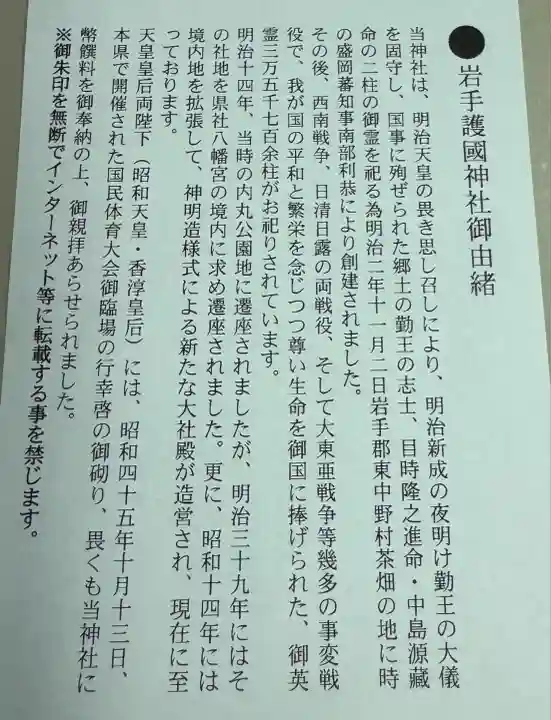 ●岩手護國神社御由緒
当神社は、明治天皇の畏き思し召しにより、明治新成の夜明け勤王の大儀
を固守し、国事に殉ぜられた郷土の勤王の志士、目時隆之進命・中島源藏
命の二柱の御霊を祀る為明治二年十一月二日岩手郡東中野村茶畑の地に時
の盛岡藩知事南部利恭により創建されました。
その後、西南戦争、日清日露の両戦役、そして大東亜戦争等幾多の事変戦
役で、我が国の平和と繁栄を念じつつ尊い生命を御国に捧げられた、御英
霊三万五千七百余柱がお祀りされています。
明治十四年、当時の内丸公園地に遷座されましたが、明治三十九年にはそ
の社地を県社八幡宮の境内に求め遷座されました。更に、昭和十四年には
境内地を拡張して、神明造様式による新たな大社殿が造営され、現在に至
っております。
天皇皇后両陛下（昭和天皇・香淳皇后）には、昭和四十五年十月十三日、
本県で開催された国民体育大会御臨場の行幸啓の御砌り、畏くも当神社に
幣饌料を御奉納の上、御親拝あらせられました。
※御朱印を無断でインターネット等に転載する事を禁じます。